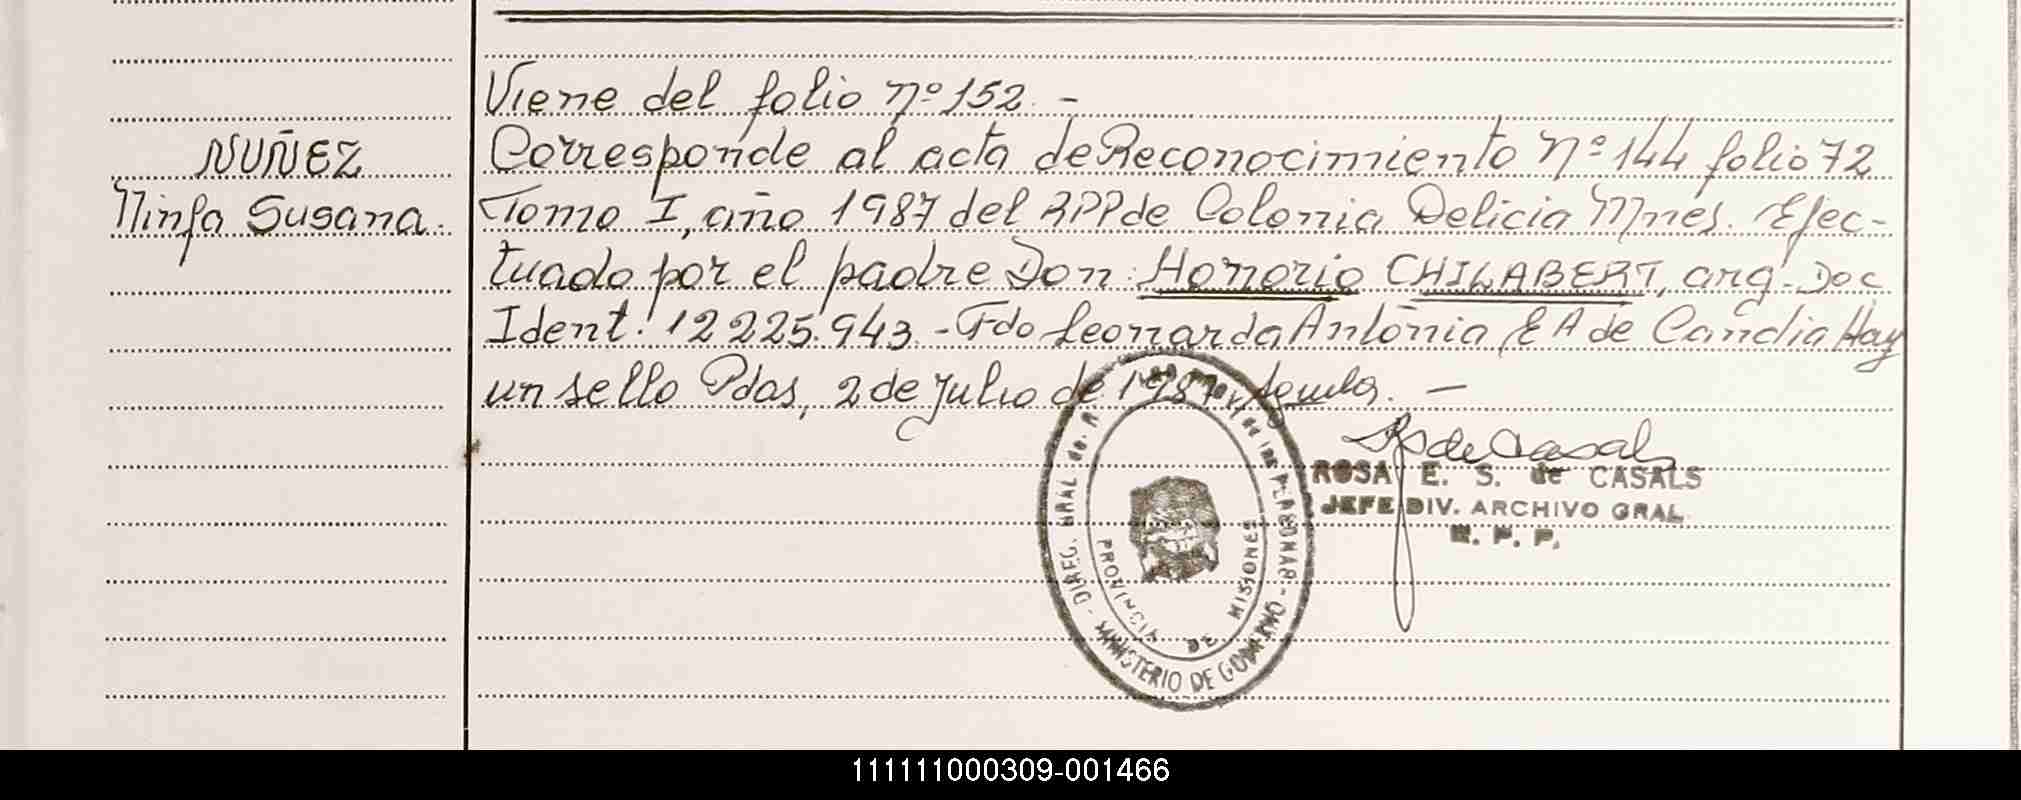 NUÑEZ
Ninfa Susana.
Viene del folio nº 152. -
Corresponde al acta de Reconocimiento nº 144 folio 72
Tomo I, año 1987 del RPP de Colonia Delicia Mnes. Efec-
tuado por el padre Don: Honorio CHILABERT, arg. Doc
Ident. 12225.943. - Fdo Leonarda Antonia E A de Candia Hay
un sello Pdas, 2 de Julio de 1987. -
ROSA E. S. de CASALS
JEFE DIV. ARCHIVO GRAL.
R. P. P.
DIREC. GRAL de. R
de las PERSONAS -
MINISTERIO DE GOBIERNO -
PROVINCIA DE MISIONES
111111000309-001466